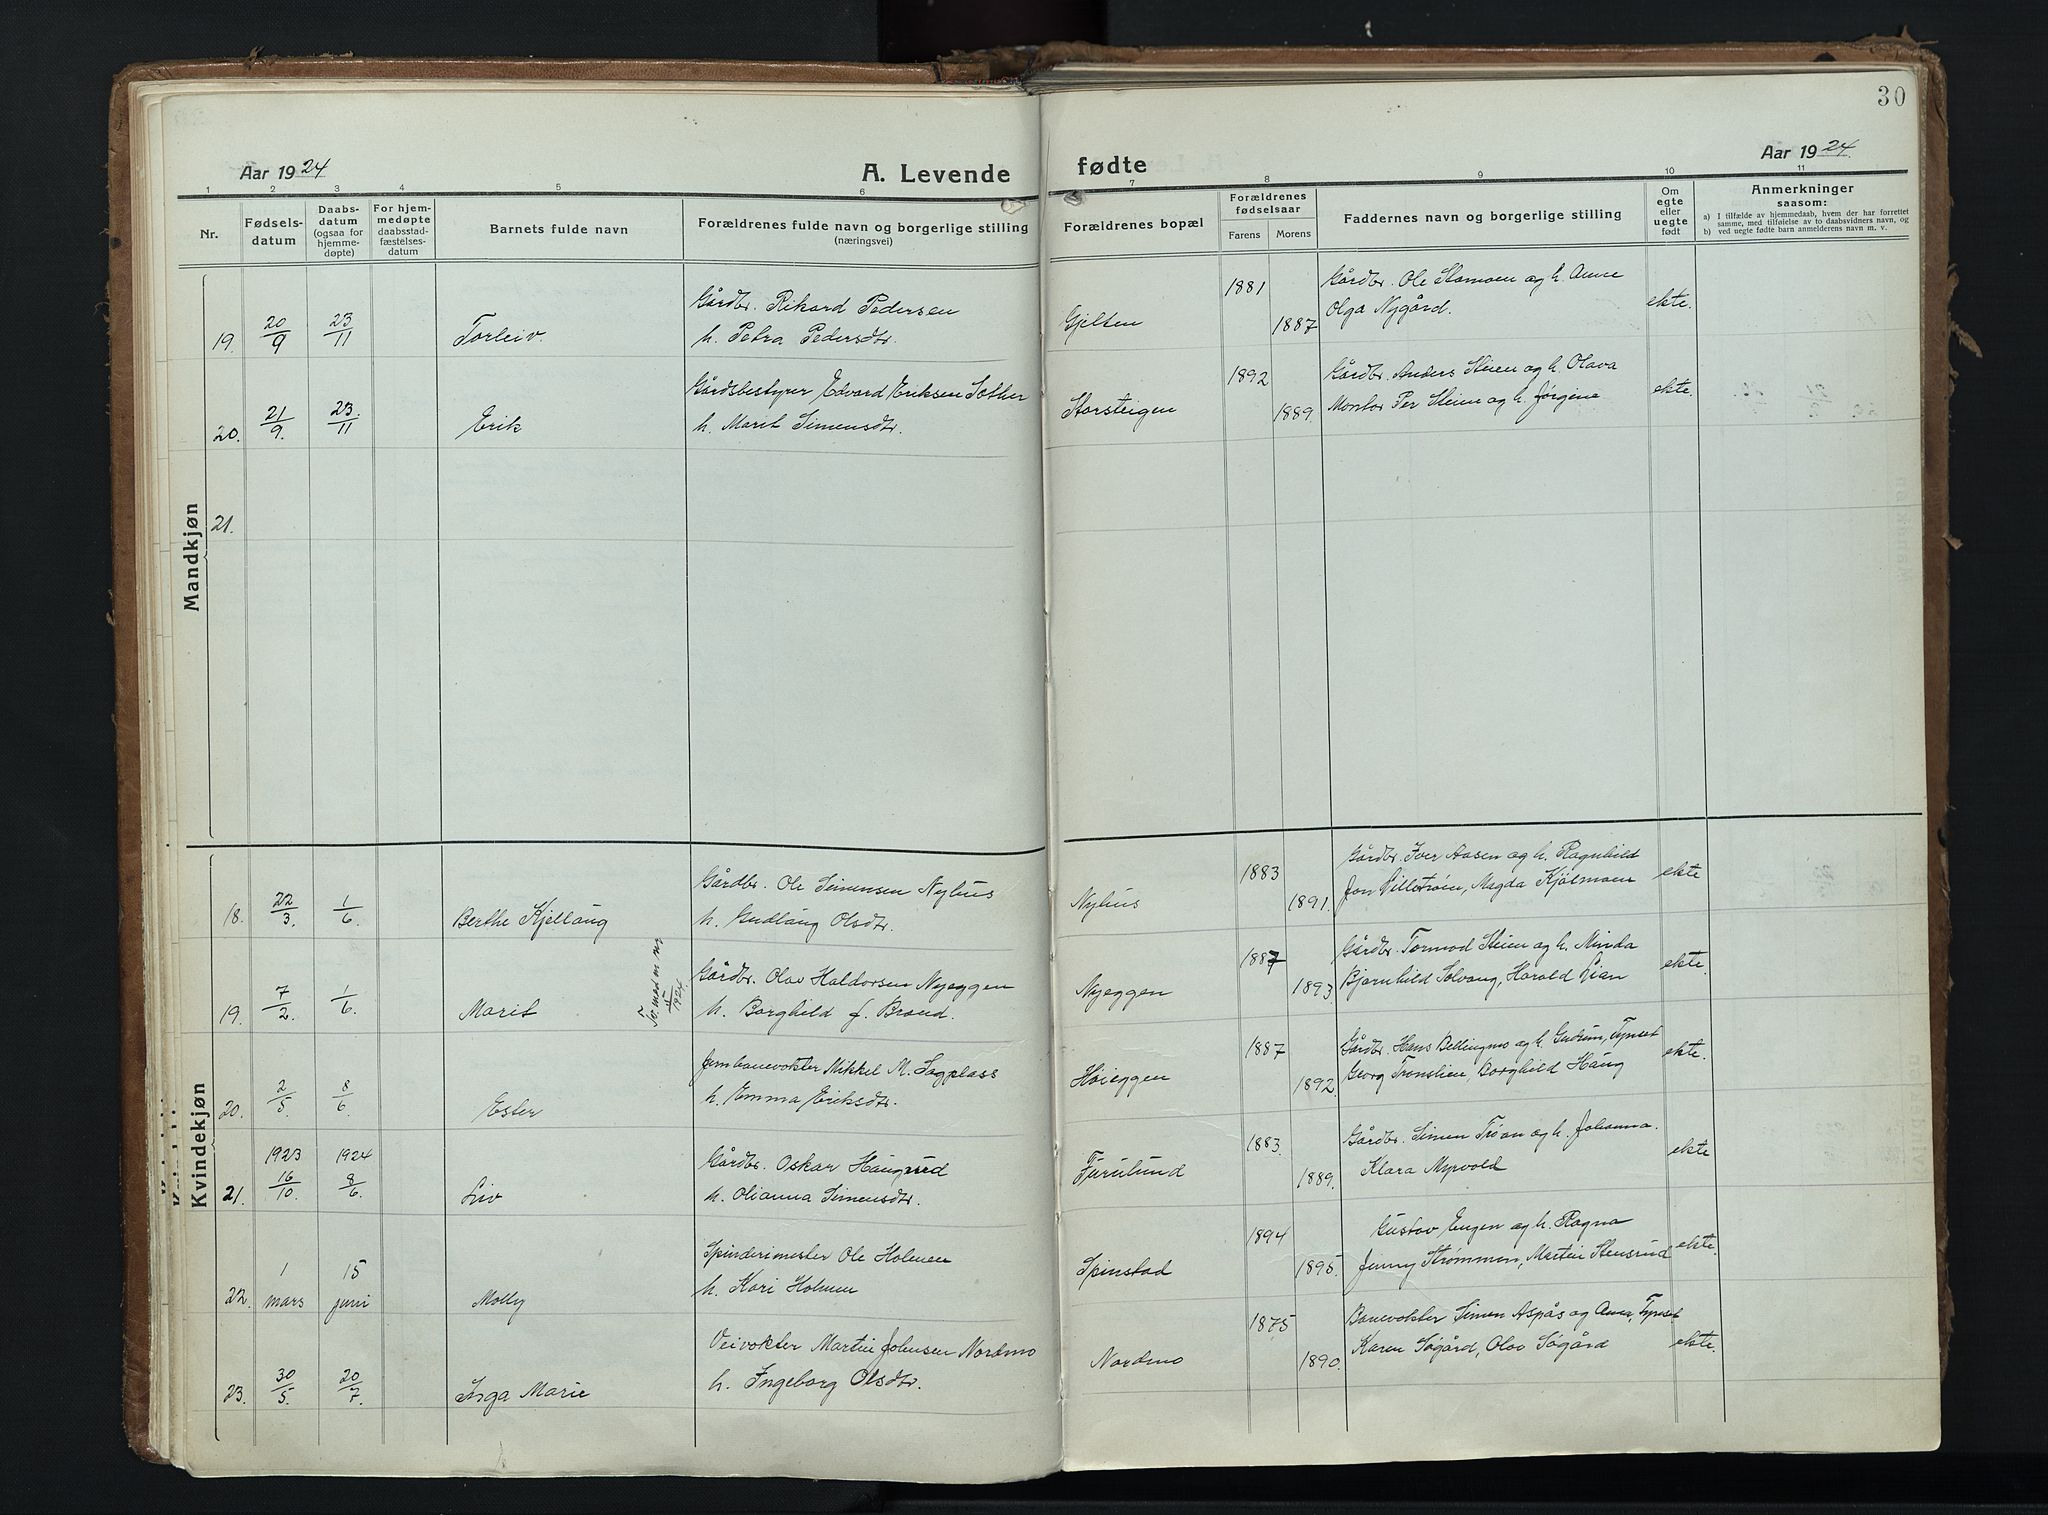 30
Aar 1924
A. Levende
fødte
Aar 1924.
1 2 3 4 5 6 7 8 9 10 11
Nr.
Fødsels-
datum
Daabs-
datum
(ogsaa for
hjemme-
døpte)
For hjem-
medøpte
daabsstad-
fæstelses-
datum
Barnets fulde navn
Forældrenes fulde navn og borgerlige stilling
(næringsvei)
Forældrenes bopæl
Forældrenes
fødselsaar
Farens Morens
Faddernes navn og borgerlige stilling
Om
egte
eller
uegte
født
Anmerkninger
saasom:
a) I tilfælde av hjemmedaab, hvem der har forrettet
samme, med tilføielse av to daabsvidners navn, og
b) ved uegte fødte barn anmelderens navn m. v.
Mandkjøn
19. 20/9 23/11 Torleiv.
Gårdbr. Rikard Pedersen
h. Petra Pedersdtr.
Gjelten
1881
1887
Gårdbr. Ole Stamoen og h. Anne
Olga Nygård.
ekte.
20. 21/9. 23/11 Erik
Gårdsbestyrer Edvard Eriksen Sæther
h. Marit Simensdtr.
Storsteigen
1892
1889.
Gårdbr. Anders Steien og h. Olava
Montør Per Steien og h. Jørgine
ekte.
21.
Kvindekjøn
18. 22/3. 1/6 Berthe Kjellaug
Gårdbr. Ole Simensen Nyhus
h. Gudlaug Olsdtr.
Nyhus
1883
1891.
Gårdbr. Iver Aasen og h. Ragnhild
Jon Lillestrøm, Magda Kjølmoen
ekte
19. 7/2. 1/6. Marit
1924
Gårdbr. Olav Haldorsen Nyeggen
h. Borghild f. Brænd.
Nyeggen
1887
1893
Gårdbr. Tormod Steien og h. Minda
Bjørnhild Solvang, Harald Lian
ekte.
20. 2/5. 8/6 Ester
Jernbanevokter Mikkel M. Sagplass
h. Emma Eriksdtr.
Høieggen
1887
1892
Gårdbr. Hans Bellingmo og h. Gudrun, Tynset
Georg Tronslien, Borghild Haug
ekte.
1923 1924
21. 16/10. 8/6. Liv
Gårdbr. Oskar Haugerud
h. Olianna Simensdtr.
Furulund
1883.
1889.
Gårdbr. Simen Trøan og h. Johanna.
Klara Myrvold
ekte
22. 1 mars 15 juni Molly
Spinderimester Ole Holmen
h. Kari Holmen
Spinstad
1894
1895.
Gustav Engen og h. Ragna
Jenny Strømmen, Martin Stensrud
ekte.
23. 30/5. 20/7. Inga Marie
Veivokter Martin Johnsen Nordmo
h. Ingeborg Olsdtr.
Nordmo
1875
1890.
Banevokter Simen Aspås og Anna, Tynset
Karen Søgård, Olav Søgård
ekte.